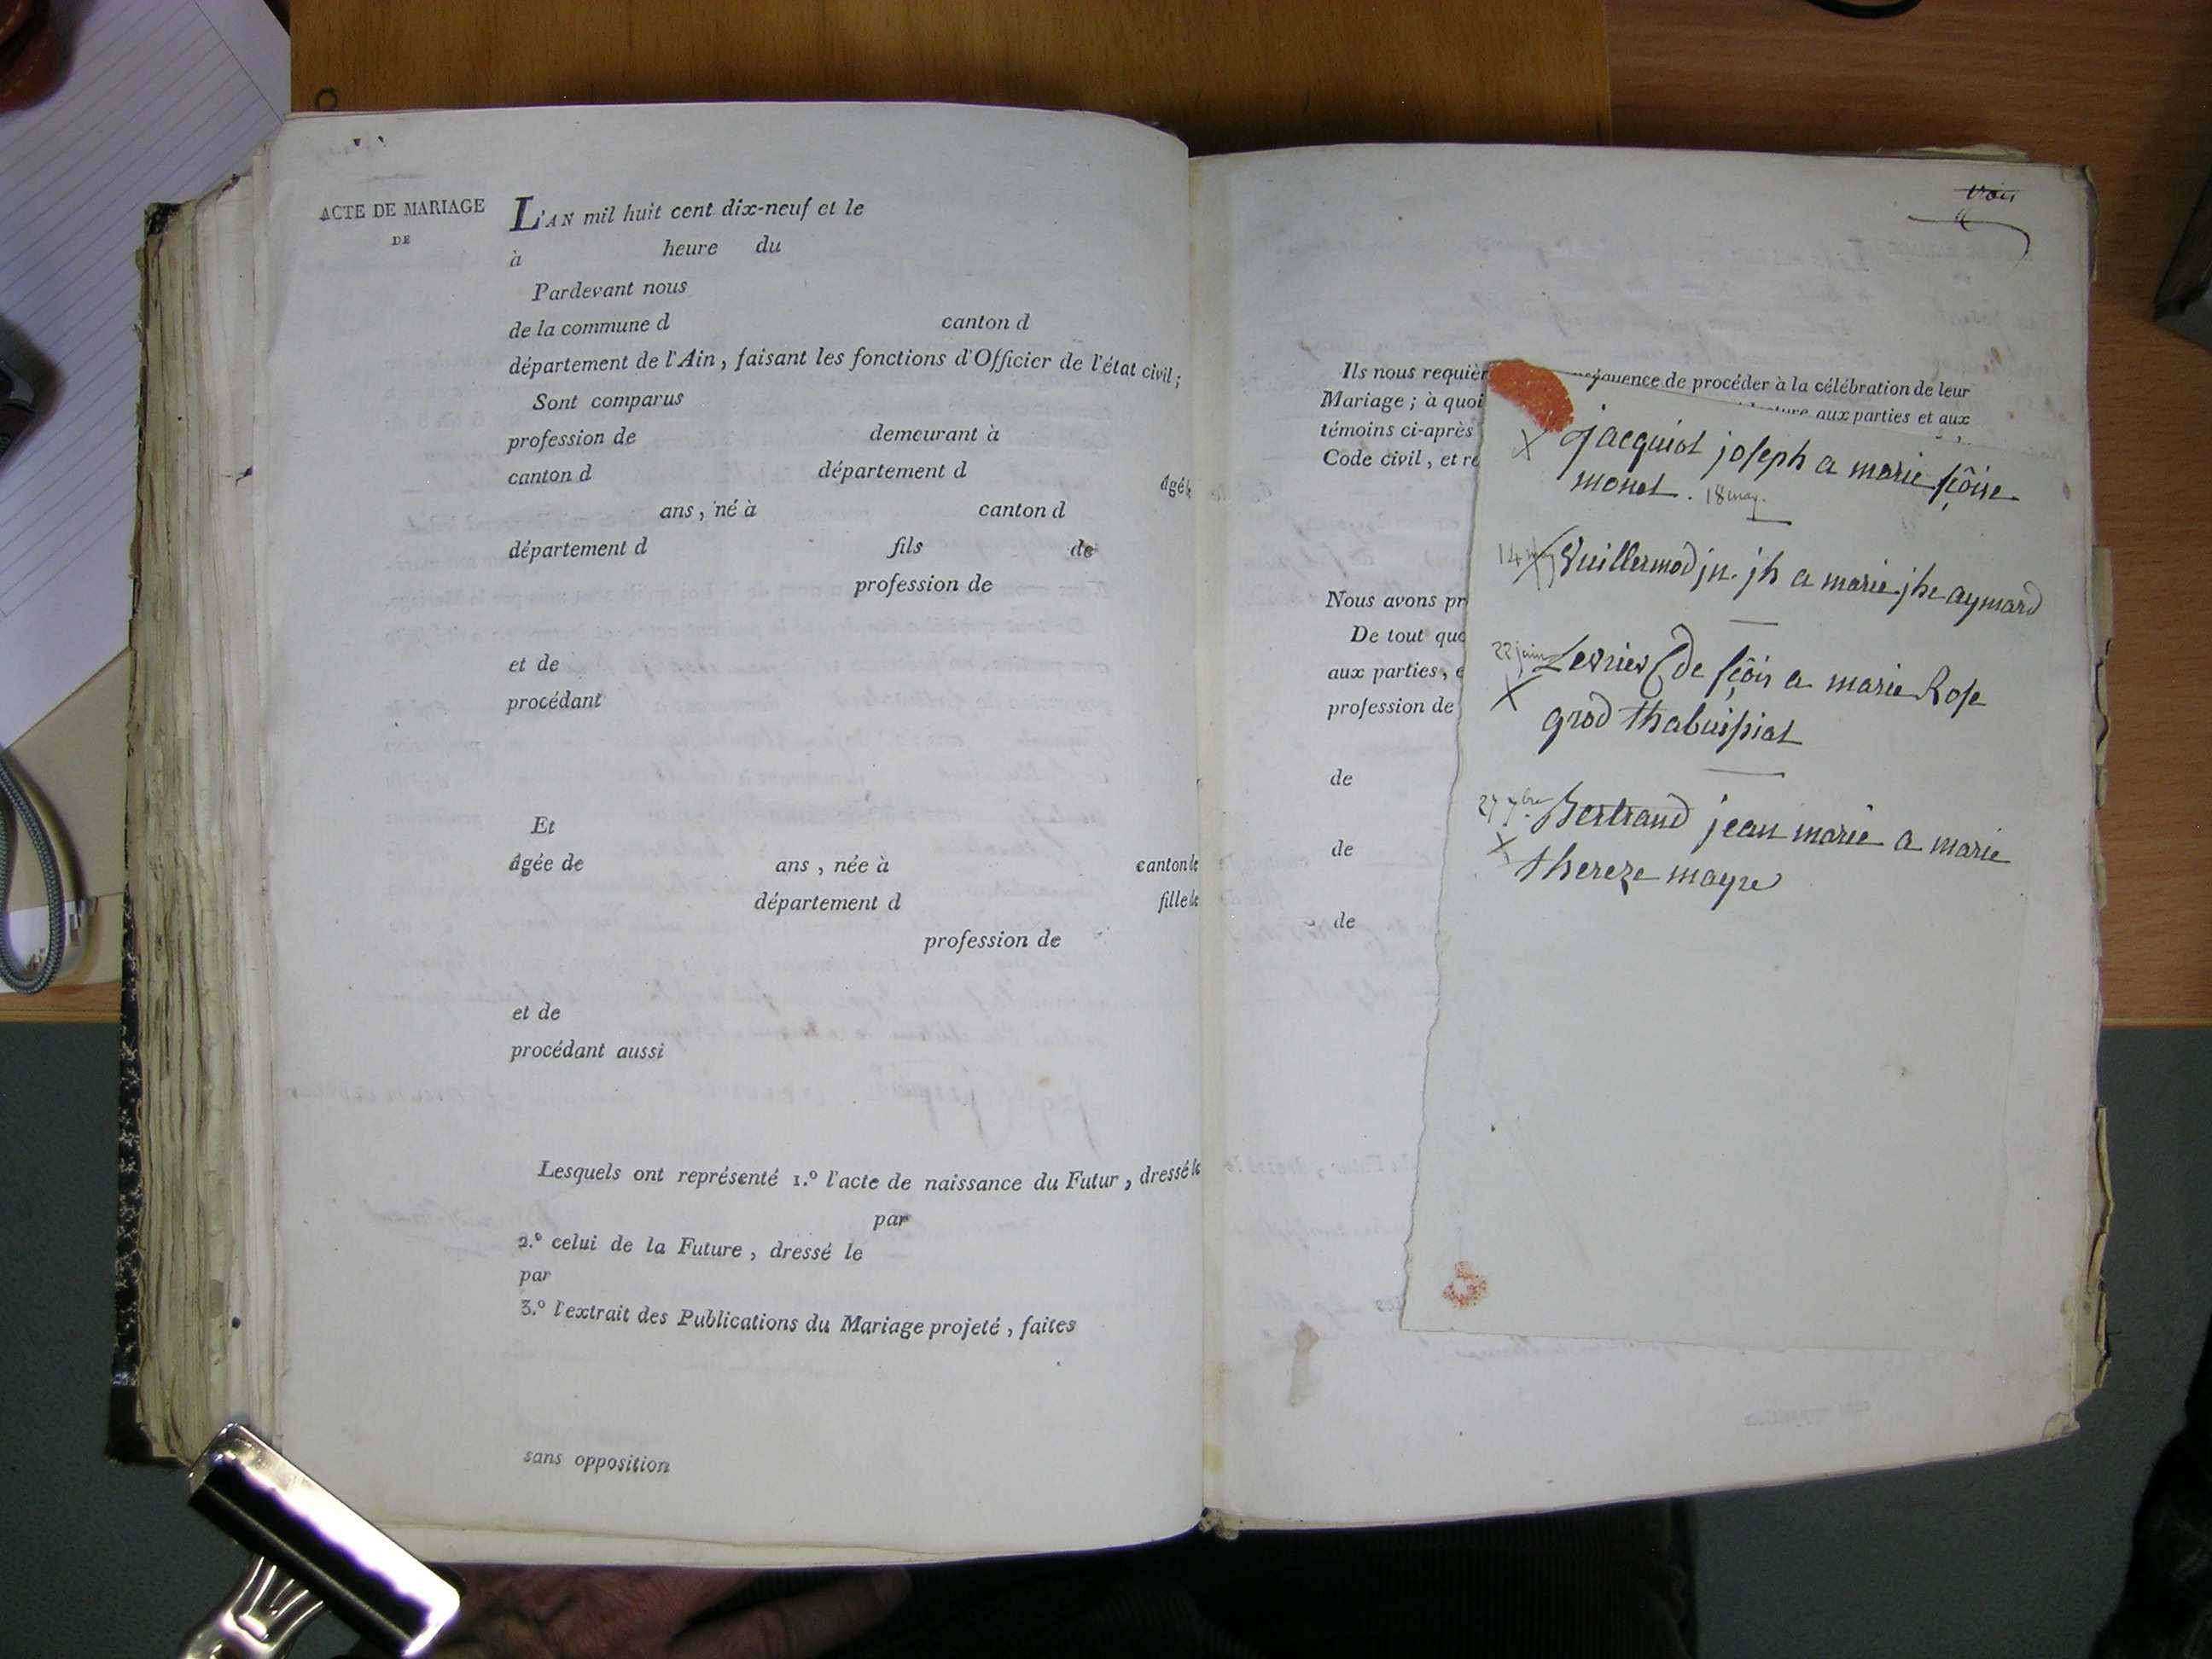 ACTE DE MARIAGE
DE
L'AN mil huit cent dix-neuf et le
à heure du
Pardevant nous
de la commune d canton d
département de l'Ain, faisant les fonctions d'Officier de l'état civil;
Sont comparus
profession de demeurant à
canton d département d âgé
ans, né à canton d
département d fils de
profession de
et de
procédant
Et
âgée de ans, née à canton
département d fille
profession de
et de
procédant aussi
Lesquels ont représenté 1.º l'acte de naissance du Futur, dressé le
par
2.º celui de la Future, dressé le
par
3.º l'extrait des Publications du Mariage projeté, faites
sans opposition
trois
Ils nous requièr quence de procéder à la célébration de leur
Mariage; à quoi aux parties et aux
témoins ci-après
Code civil, et re
Nous avons pr
De tout quo
aux parties, e
profession de
de
de
de
X Jacquiot joseph a marie fçoise
monet. 18 may.
14 may X Vuillermod jn. jh a marie jhe aymard
22 juin Levrier Cde fçois a marie Rose
X grod thabuissiat
27 7bre Bertrand jean marie a marie
X thereze mayre